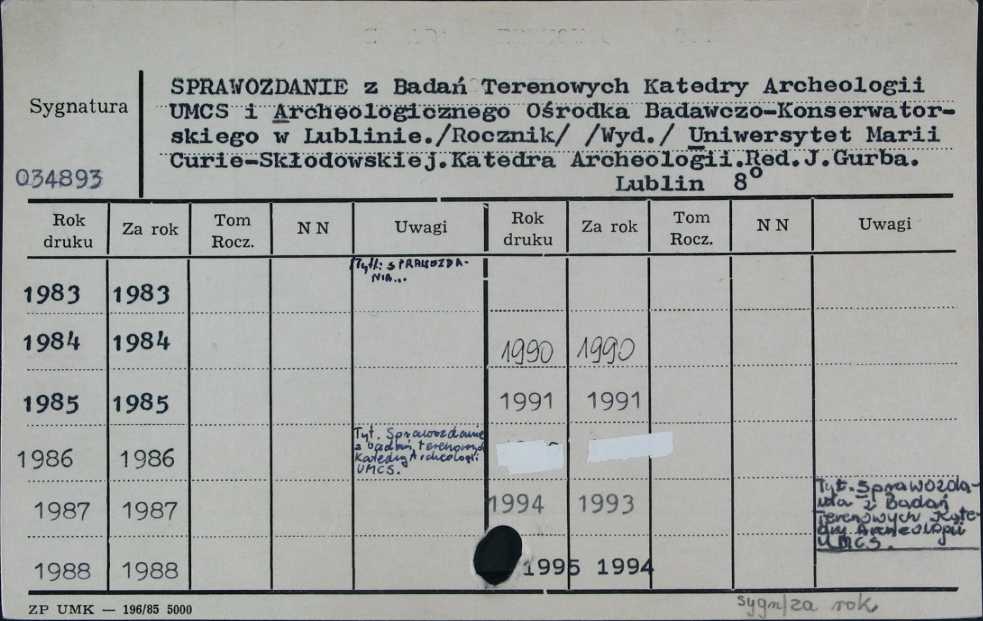 SPRAWOZDANIE z Badań Terenowych Katedry Archeologii
Sygnatura
UMCS i Archeologicznego Ośrodka Badawczo-Konserwator-
skiego w Lublinie./Rocznik/ /Wyd./ Uniwersytet Marii
Curie-Skłodowskiej.Katedra Archeologii.Red.J.Gurba.
034893
Lublin 8°
Rok druku Za rok Tom Rocz. N N Uwagi Rok druku Za rok Tom Rocz. N N Uwagi
Tyt.: SPRAWOZDA-
NIA...
1983 1983
1984 1984 1990 1990
1985 1985 1991 1991
Tyt. Sprawozdanie
z badań terenowych
Katedry Archeologii
UMCS.
1986 1986
1987 1987 1994 1993
Tyt. Sprawozda-
nia z Badań
Terenowych Kate-
dry Archeologii
UMCS.
1988 1988 1995 1994
ZP UMK — 196/85 5000
sygn/za rok